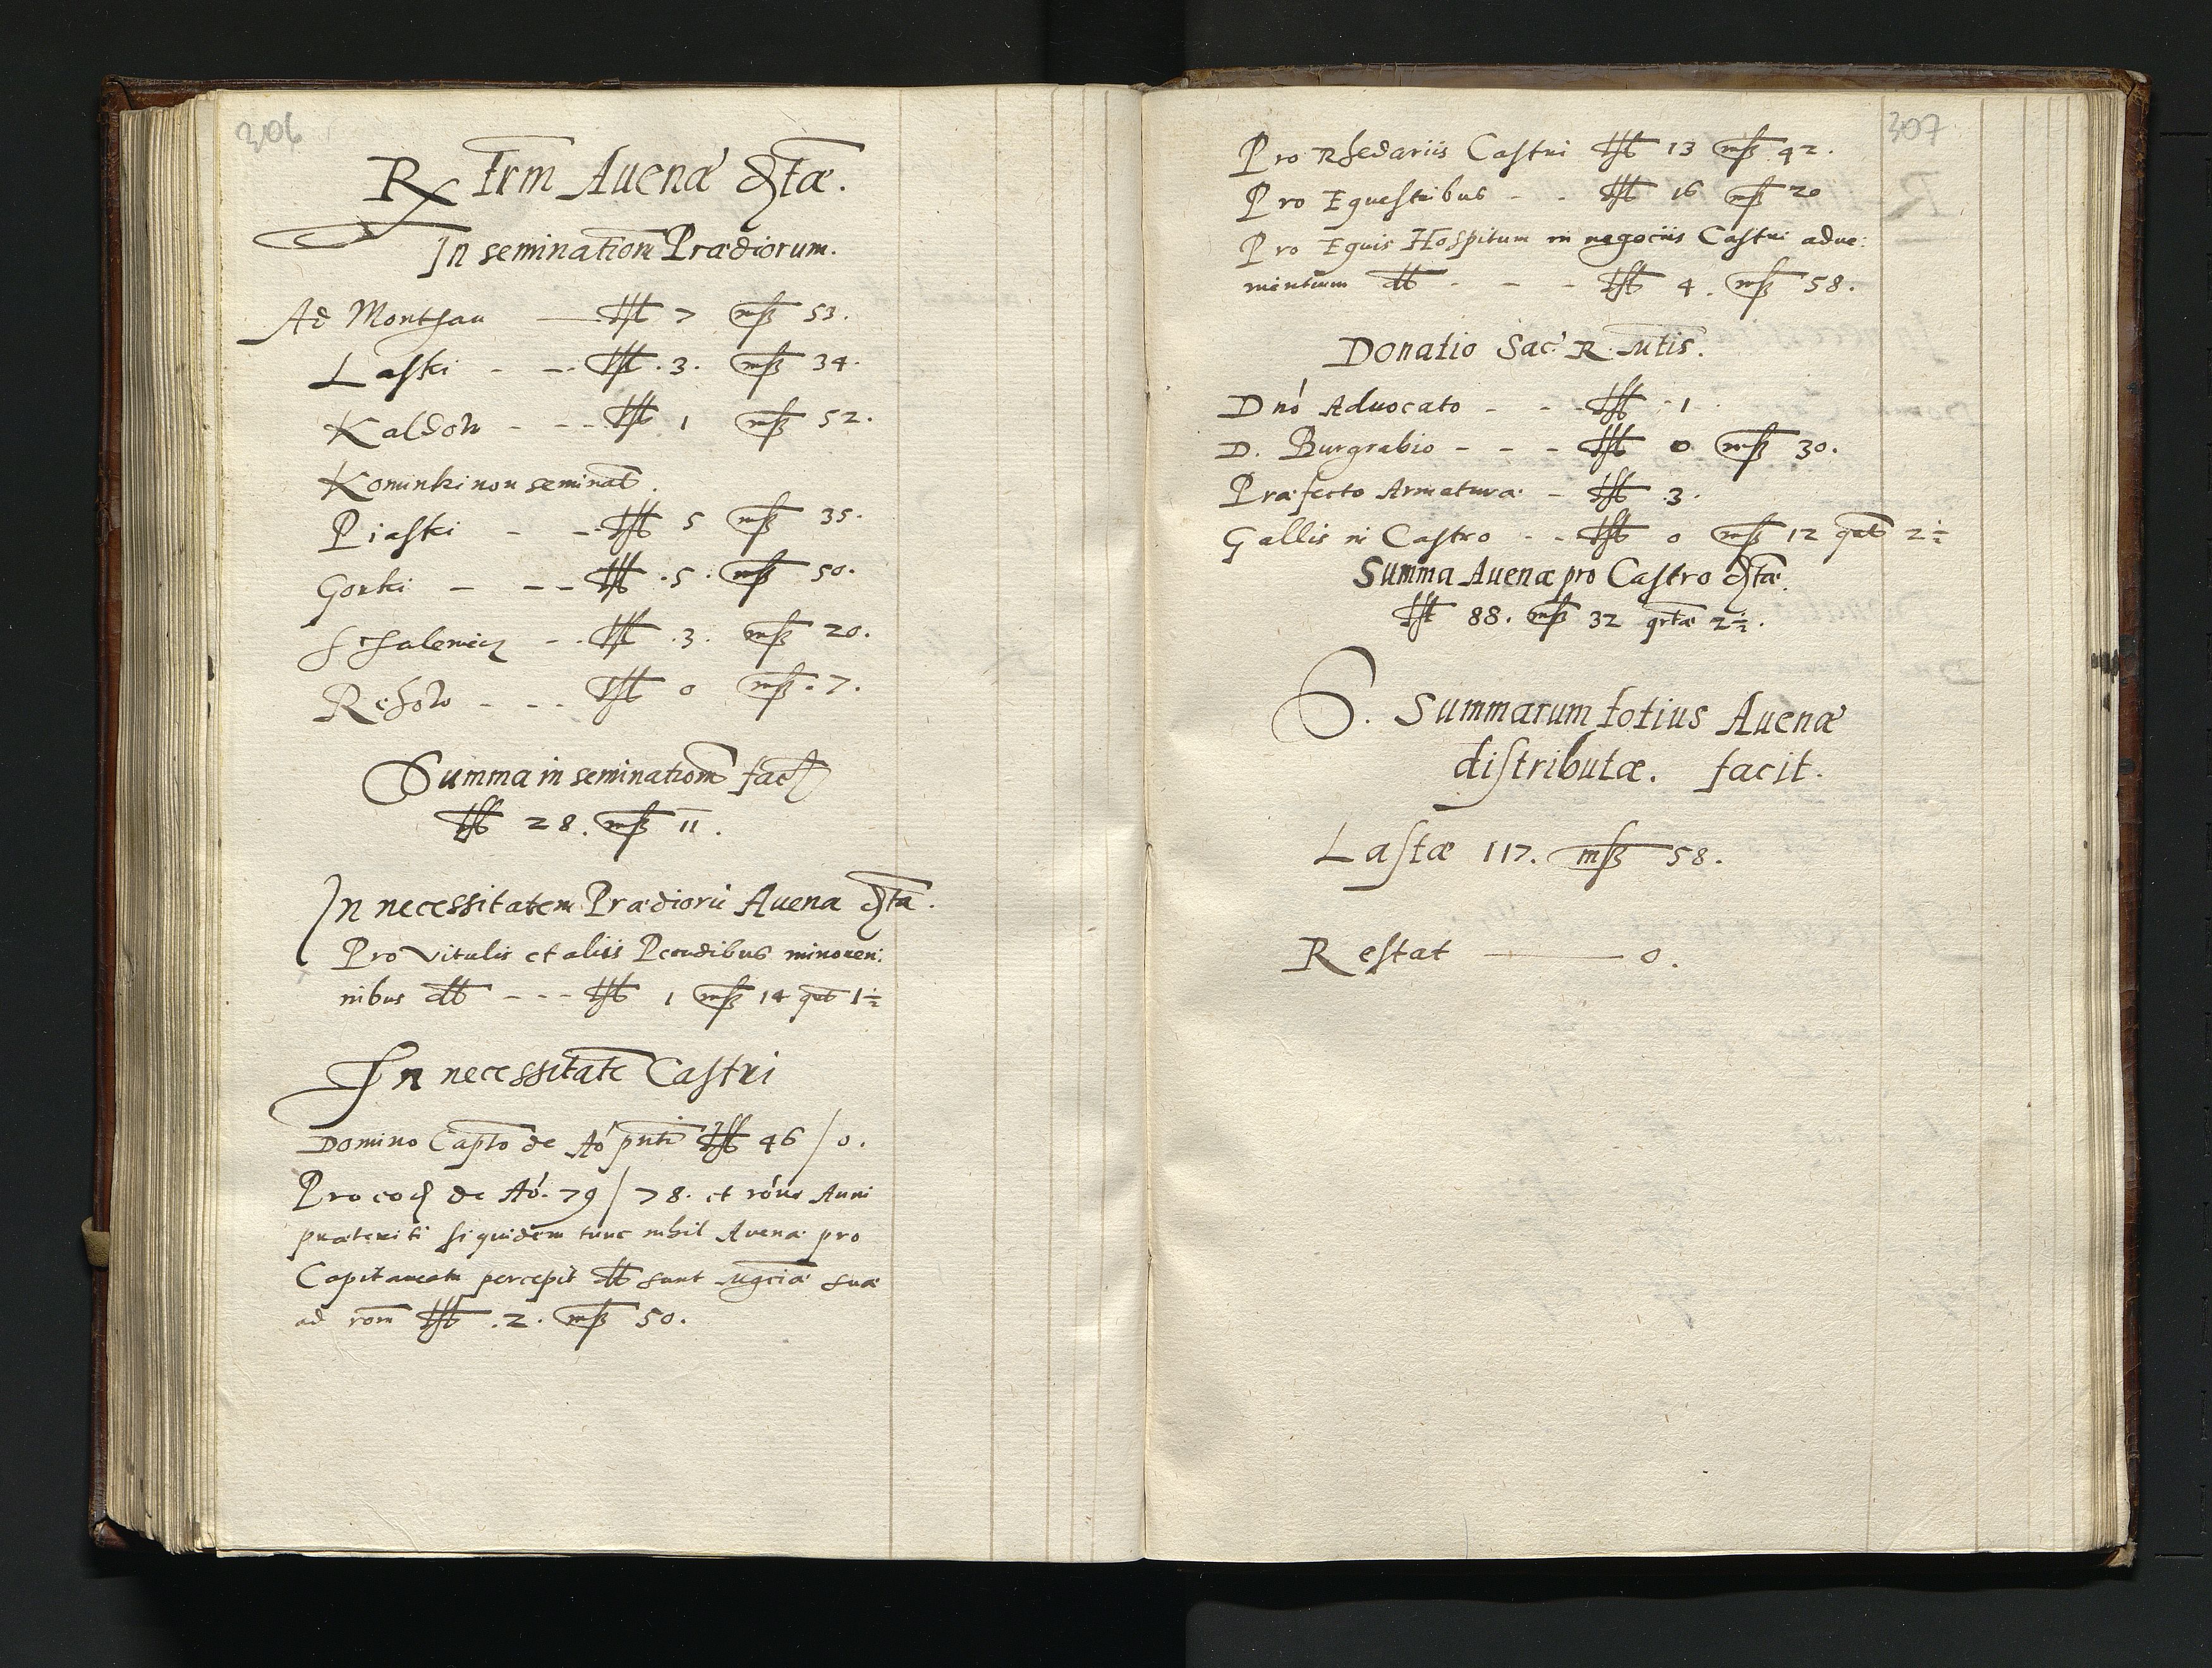 306
Rx Itrm Auenæ dtæ.
In seminationē Prædiorum.
Ad Monthau — Lst 7 mß 53.
Laski - -. Lst .3. mß 34.
Kaldow - - - Lst 1 mß 52.
Kominki non seminat.
Piaski - -. Lst 5 mß 35.
Gorki - - - Lst .5. mß 50.
Schalewicz - - Lst .3. mß 20.
Rehow - - - Lst 0 mß .7.
Summa in seminationē facit
Lst 28. mß 11.
In necessitatem Prædiorū Auena dta.
Pro Vitulis et aliis Pecudibus minoren:
nibus dt - - - Lst 1 mß 14 qrt 1½
In necessitatē Castri
Domino Capto de Aō pnti Lst 46 / 0.
Pro eod de Aó. 79 / 78. et róne Anni
præteriti siquidem tunc nihil Auenæ pro
Capitaneatu percepit dt sunt Mgciæ suæ
ad rom Lst .2. mß 50.
307
Pro Rhedariis Castri Lst 13 mß 42.
Pro Equestribus - - Lst 16 mß 20
Pro Equis Hospitum in negociis Castri adue:
nientium dt - - - Lst 4. mß 58.
Donatio Sac: R. Mtis.
Dnó Aduocato - - - Lst 1.
D. Burgrabio - - - Lst 0 mß 30.
Præfecto Armaturæ - Lst 3.
Gallis in Castro - - Lst 0 mß 12 qrt 2½
Summa Auenæ pro Castro dtæ.
Lst 88. mß 32 qrtæ 2½.
S. Summarum totius Auenæ
distributæ. facit.
Lastæ 117. mß 58.
Restat — 0.